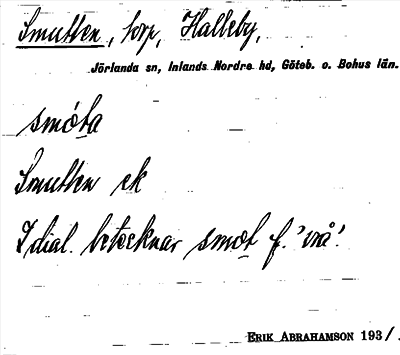 Smutten, torp, Halleby,
Jörlanda sn, Inlands Nordre hd, Göteb. o. Bohus län.
smó̀ta
Smutten ek
I dial. betecknar smot f. 'vrå'.
ERIK ABRAHAMSON 193/.